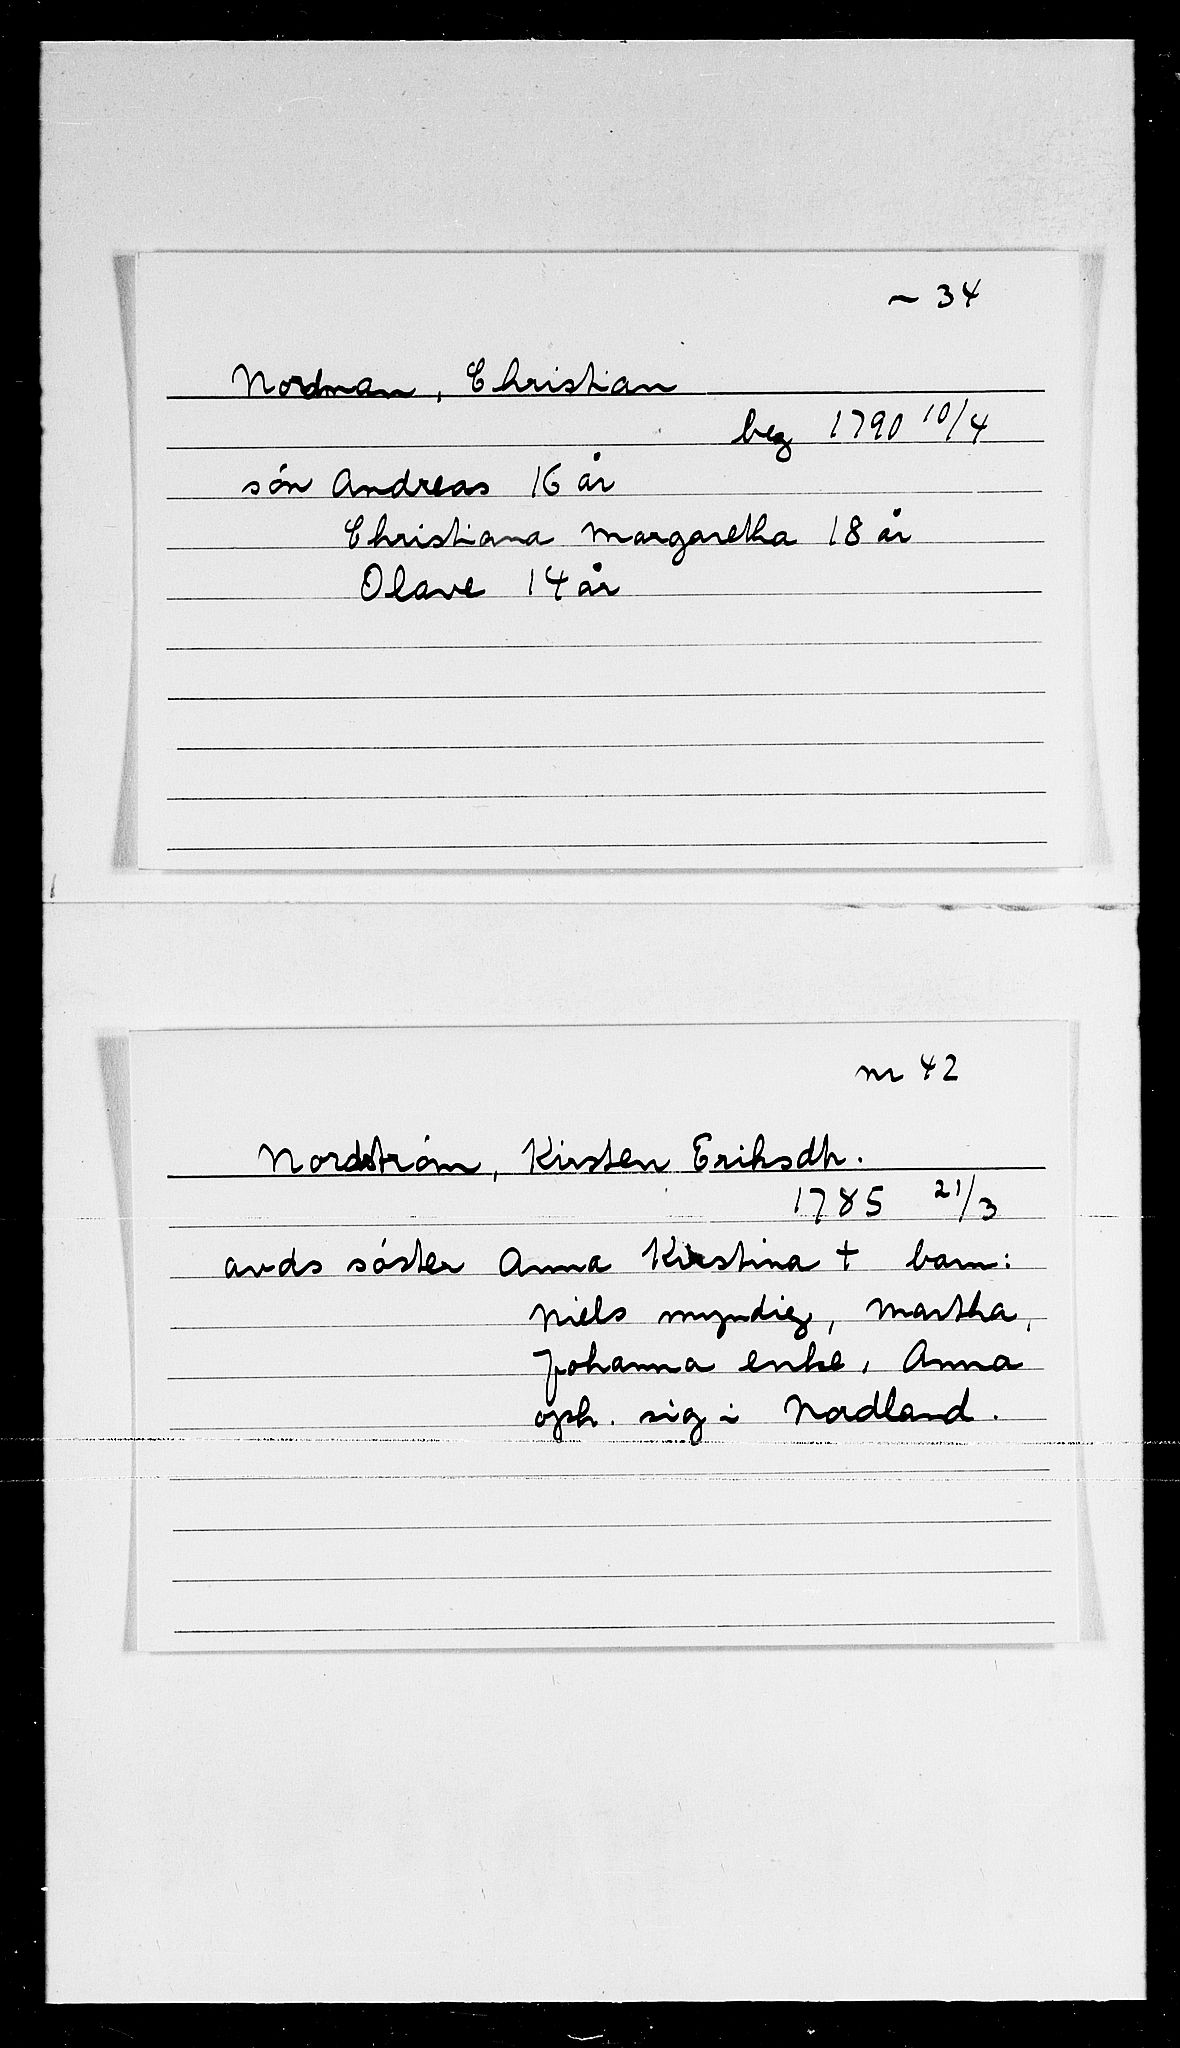 ~ 34
Nordman, Christian
beg 1790 10/4
són Andreas 16 år
Christiana Margaretha 18 år
Olave 14 år
nr 42
Nordstróm, Kirsten Eriksdtr.
1785 21/3
avds sóster Anna Kirstina † barn:
Niels myndig, Martha,
Johanna enke, Anna
oph. sig i Nordland.